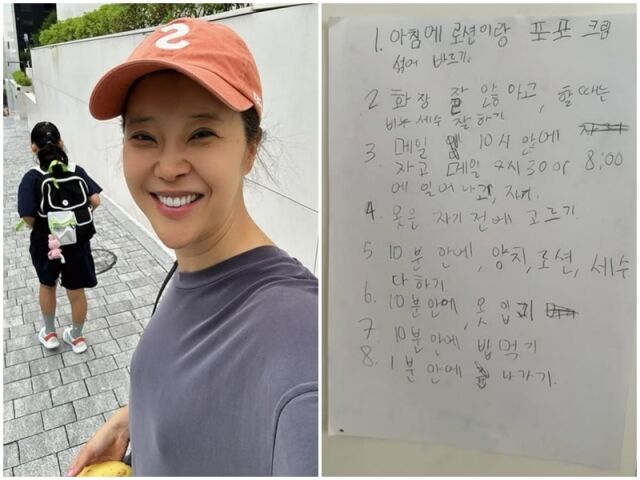 S
1. 아침에 로션이랑 포포 크림
섞어 바르기.
2 화장 잘 안하고, 할때는
비누 세수 잘 하기
3 메일 10시 안에
자고 메일 7시30 or 8:00
에 일어나고, 자기.
4. 옷은 자기 전에 고르기.
5 10분 안에, 양치, 로션, 세수
다 하기.
6. 10분안에, 옷 입기
7 10분안에 밥먹기
8. 1분 안에 나가기.